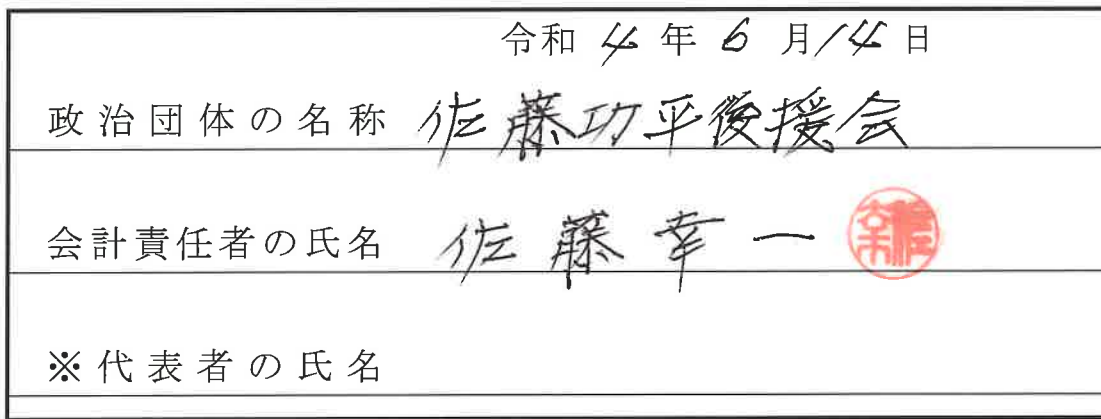 令和 4 年 6 月 14 日
政治団体の名称 佐藤功平後援会
会計責任者の氏名 佐藤幸一
※代表者の氏名